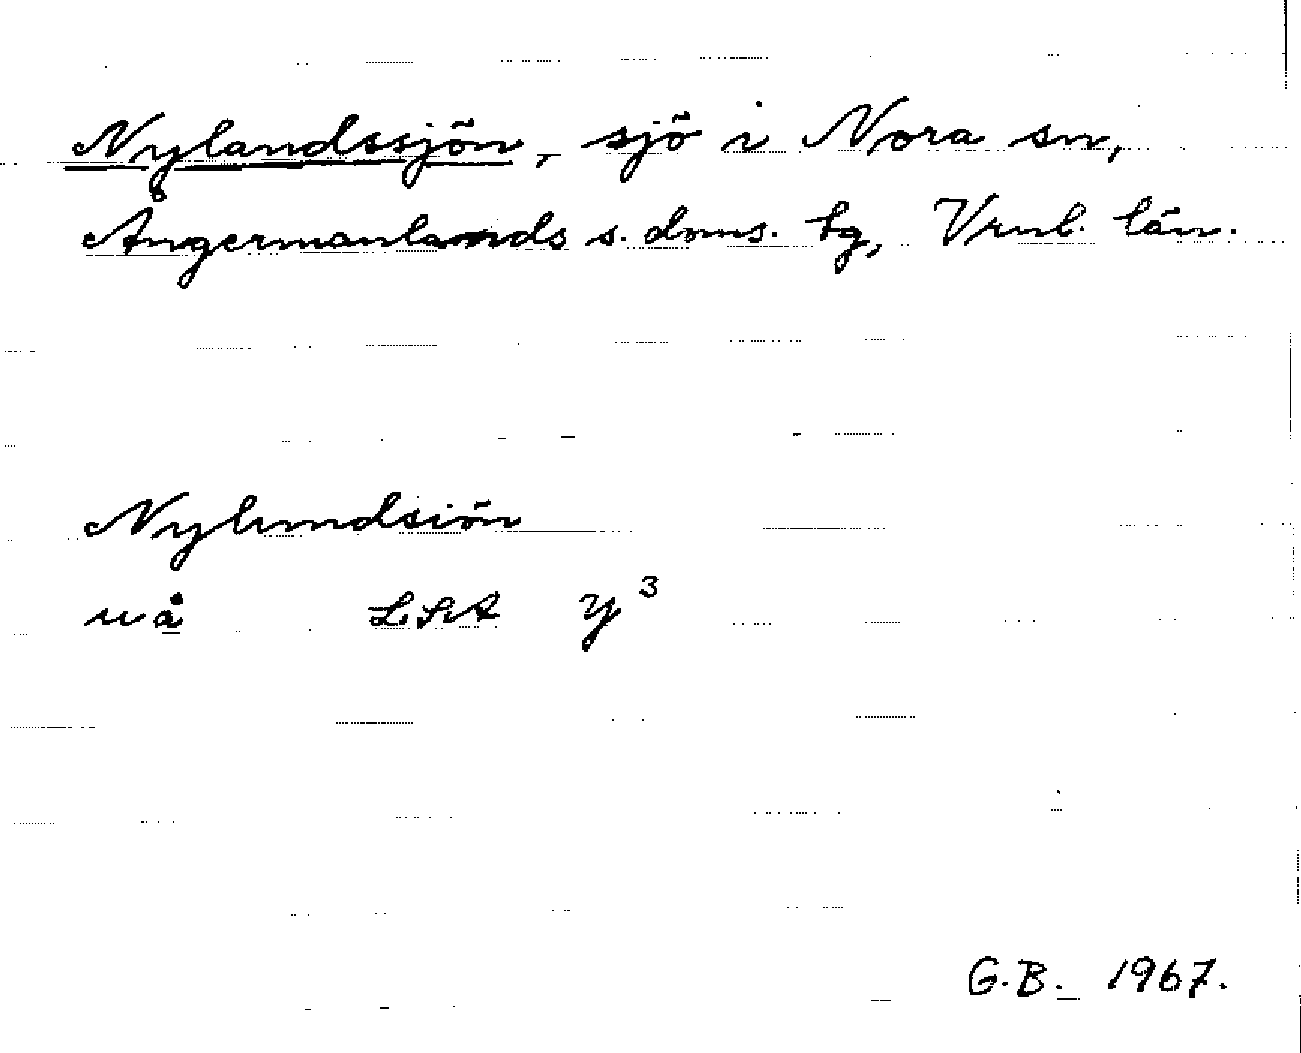 Nylandssjön, sjö i Nora sn,
Ångermanlands s. doms. tg, Vrnl. län.
Nylundsiön
uå LSA Y 3
G.B. 1967.